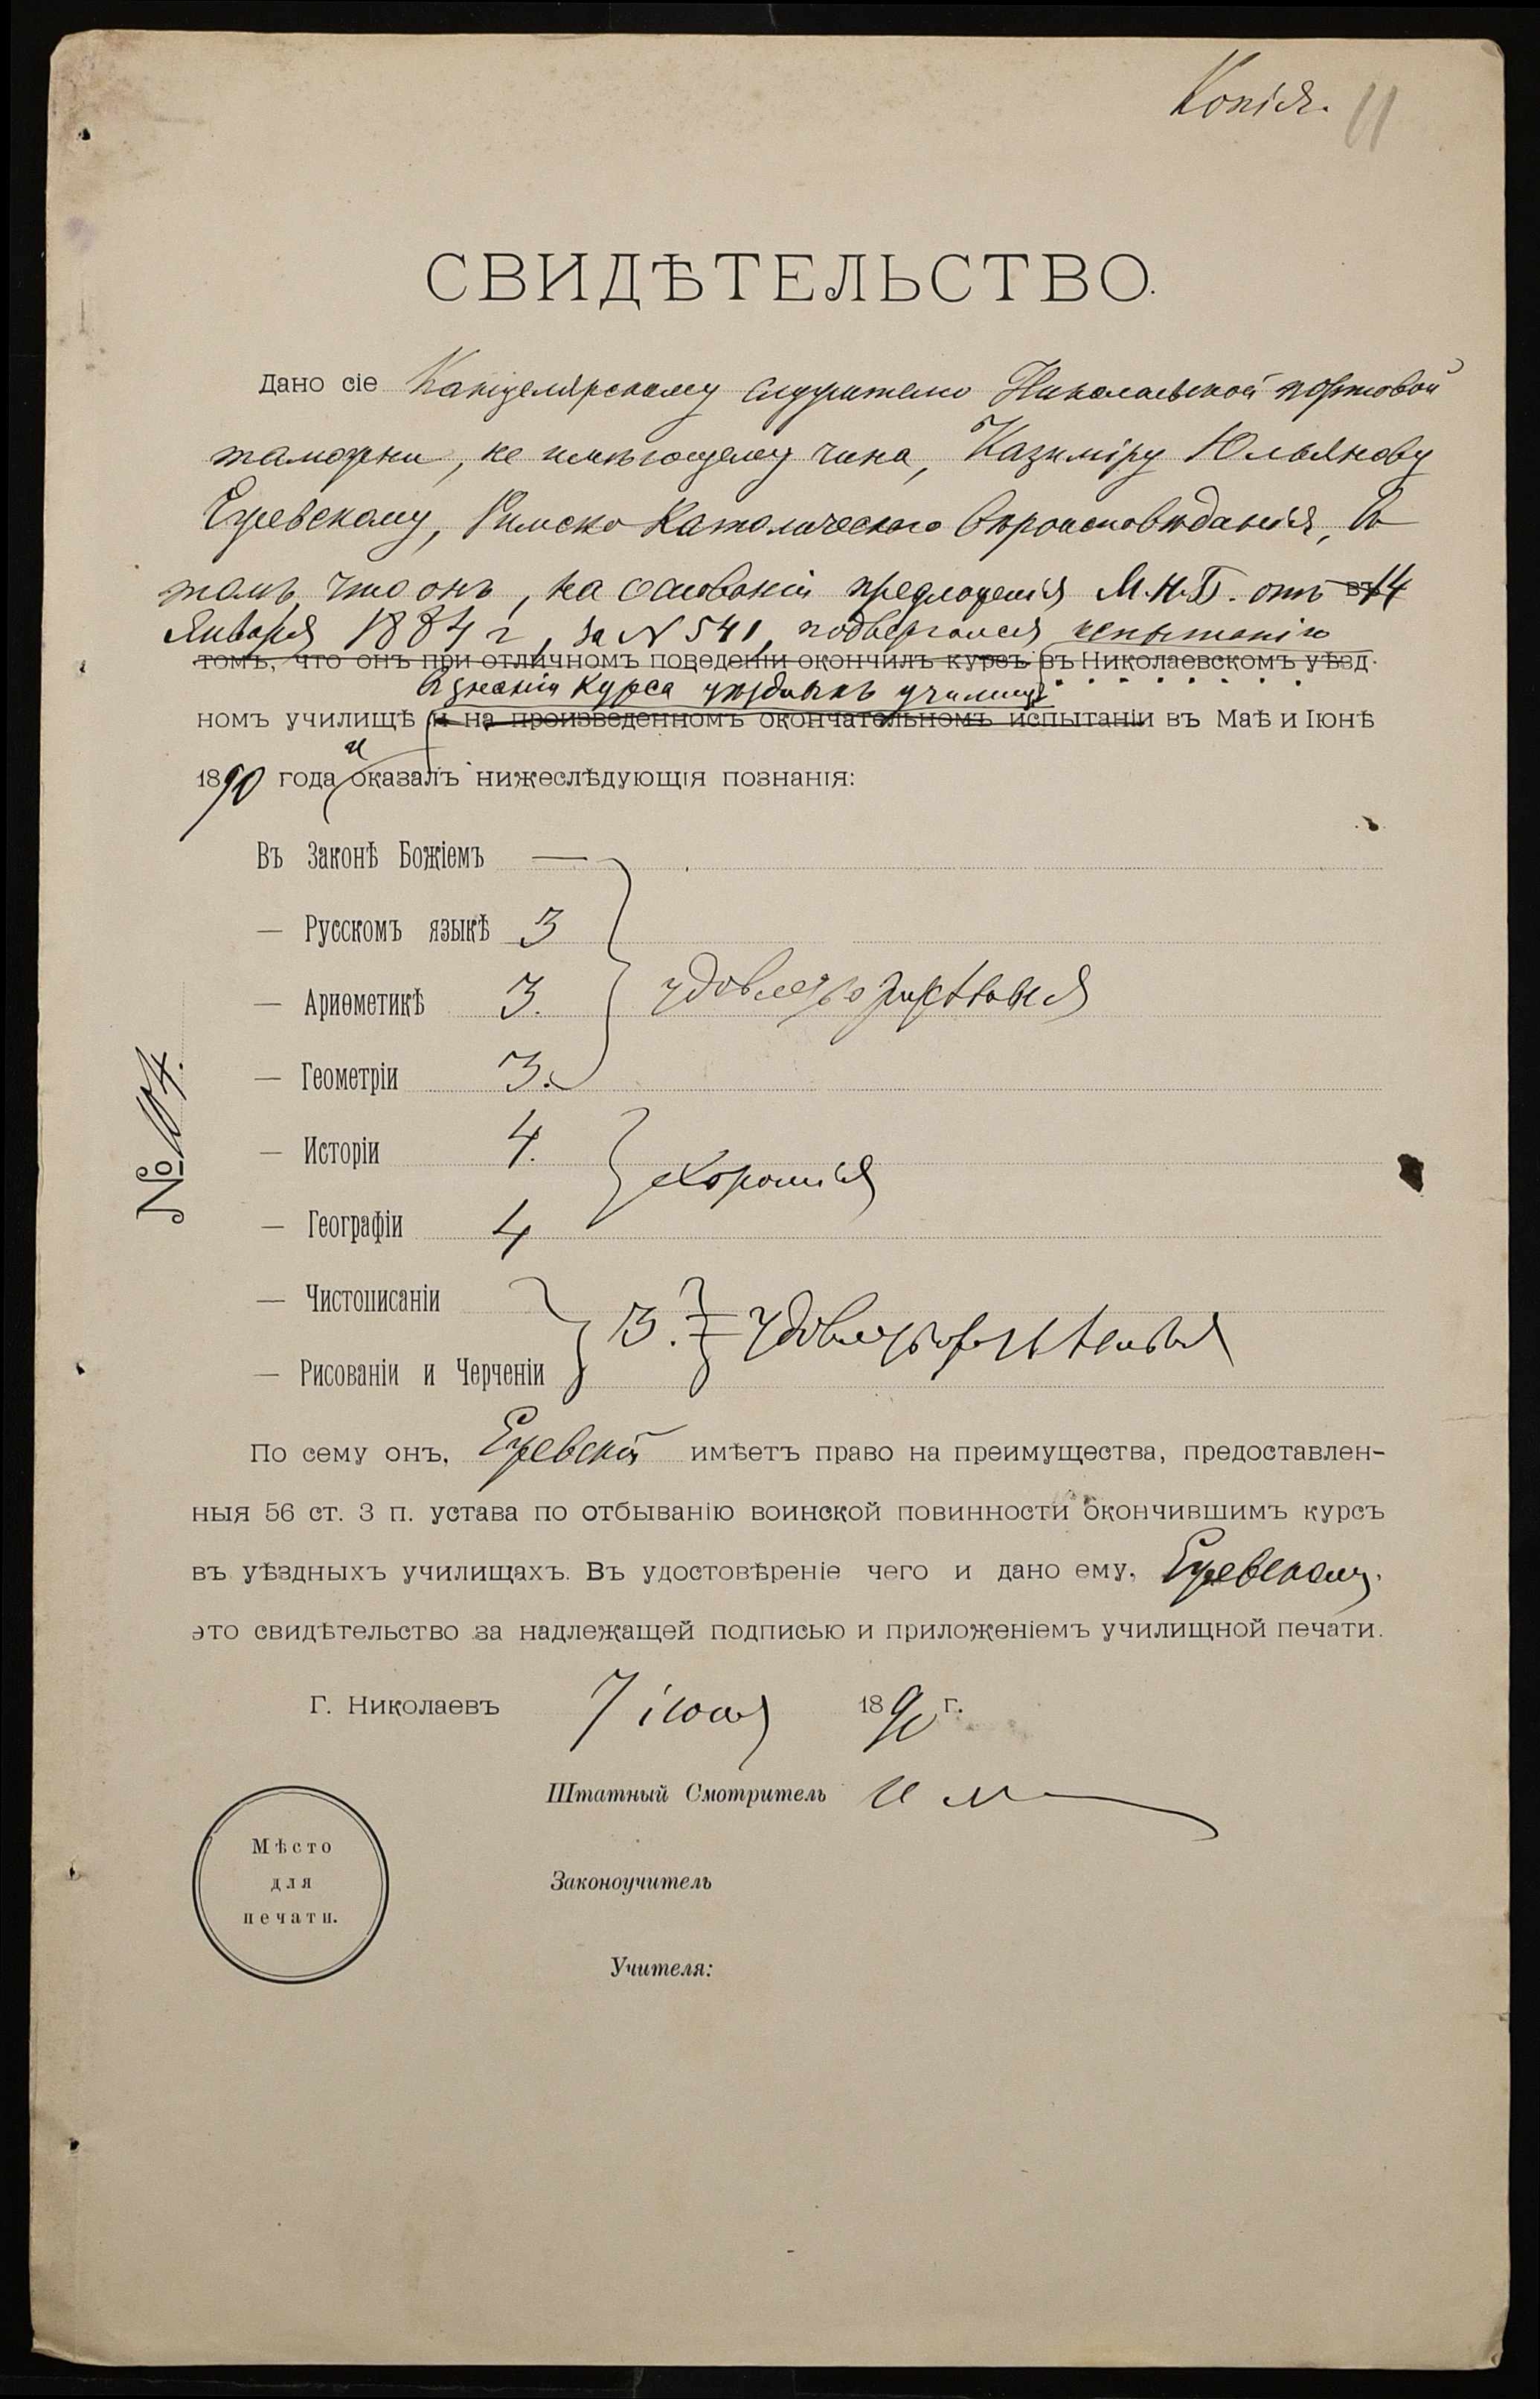 Копія. 11
СВИДѢТЕЛЬСТВО.
Дано сіе Канцелярскому служителю Николаевской портовой
таможни, не имѣющему чина, Казиміру Юльянову
Ежевскому, Римско Католическаго вѣроисповѣданія, въ
томъ, что онъ, на основаніи предложенія М.Н.П. отъ въ 14
Января 1884 г, за N 541, подвергался испытанію
томъ, что онъ при отличномъ поведеніи окончилъ курсъ въ Николаевскомъ уѣзд-
въ знаніи курса уѣздныхъ училищъ
номъ училищѣ и на произведенномъ окончательномъ испытаніи въ Маѣ и Іюнѣ
и
1890 года оказалъ нижеслѣдующія познанія:
Въ Законѣ Божіемъ —
— Русскомъ языкѣ 3
— Ариѳметикѣ 3. удовлетворительныя
— Геометріи 3.
— Исторіи 4.
хорошія
— Географіи 4
— Чистописаніи
3. = удовлетворительныя
— Рисованіи и Черченіи
По сему онъ, Ежевскій имѣетъ право на преимущества, предоставлен-
ныя 56 ст. 3 п. устава по отбыванію воинской повинности окончившимъ курсъ
въ уѣздныхъ училищахъ. Въ удостовѣреніе чего и дано ему, Ежевскому,
это свидѣтельство за надлежащей подписью и приложеніемъ училищной печати.
Г. Николаевъ 7 іюня 1890 г.
Штатный Смотритель
Мѣсто
для
печати.
Законоучитель
Учителя:
№ 104.